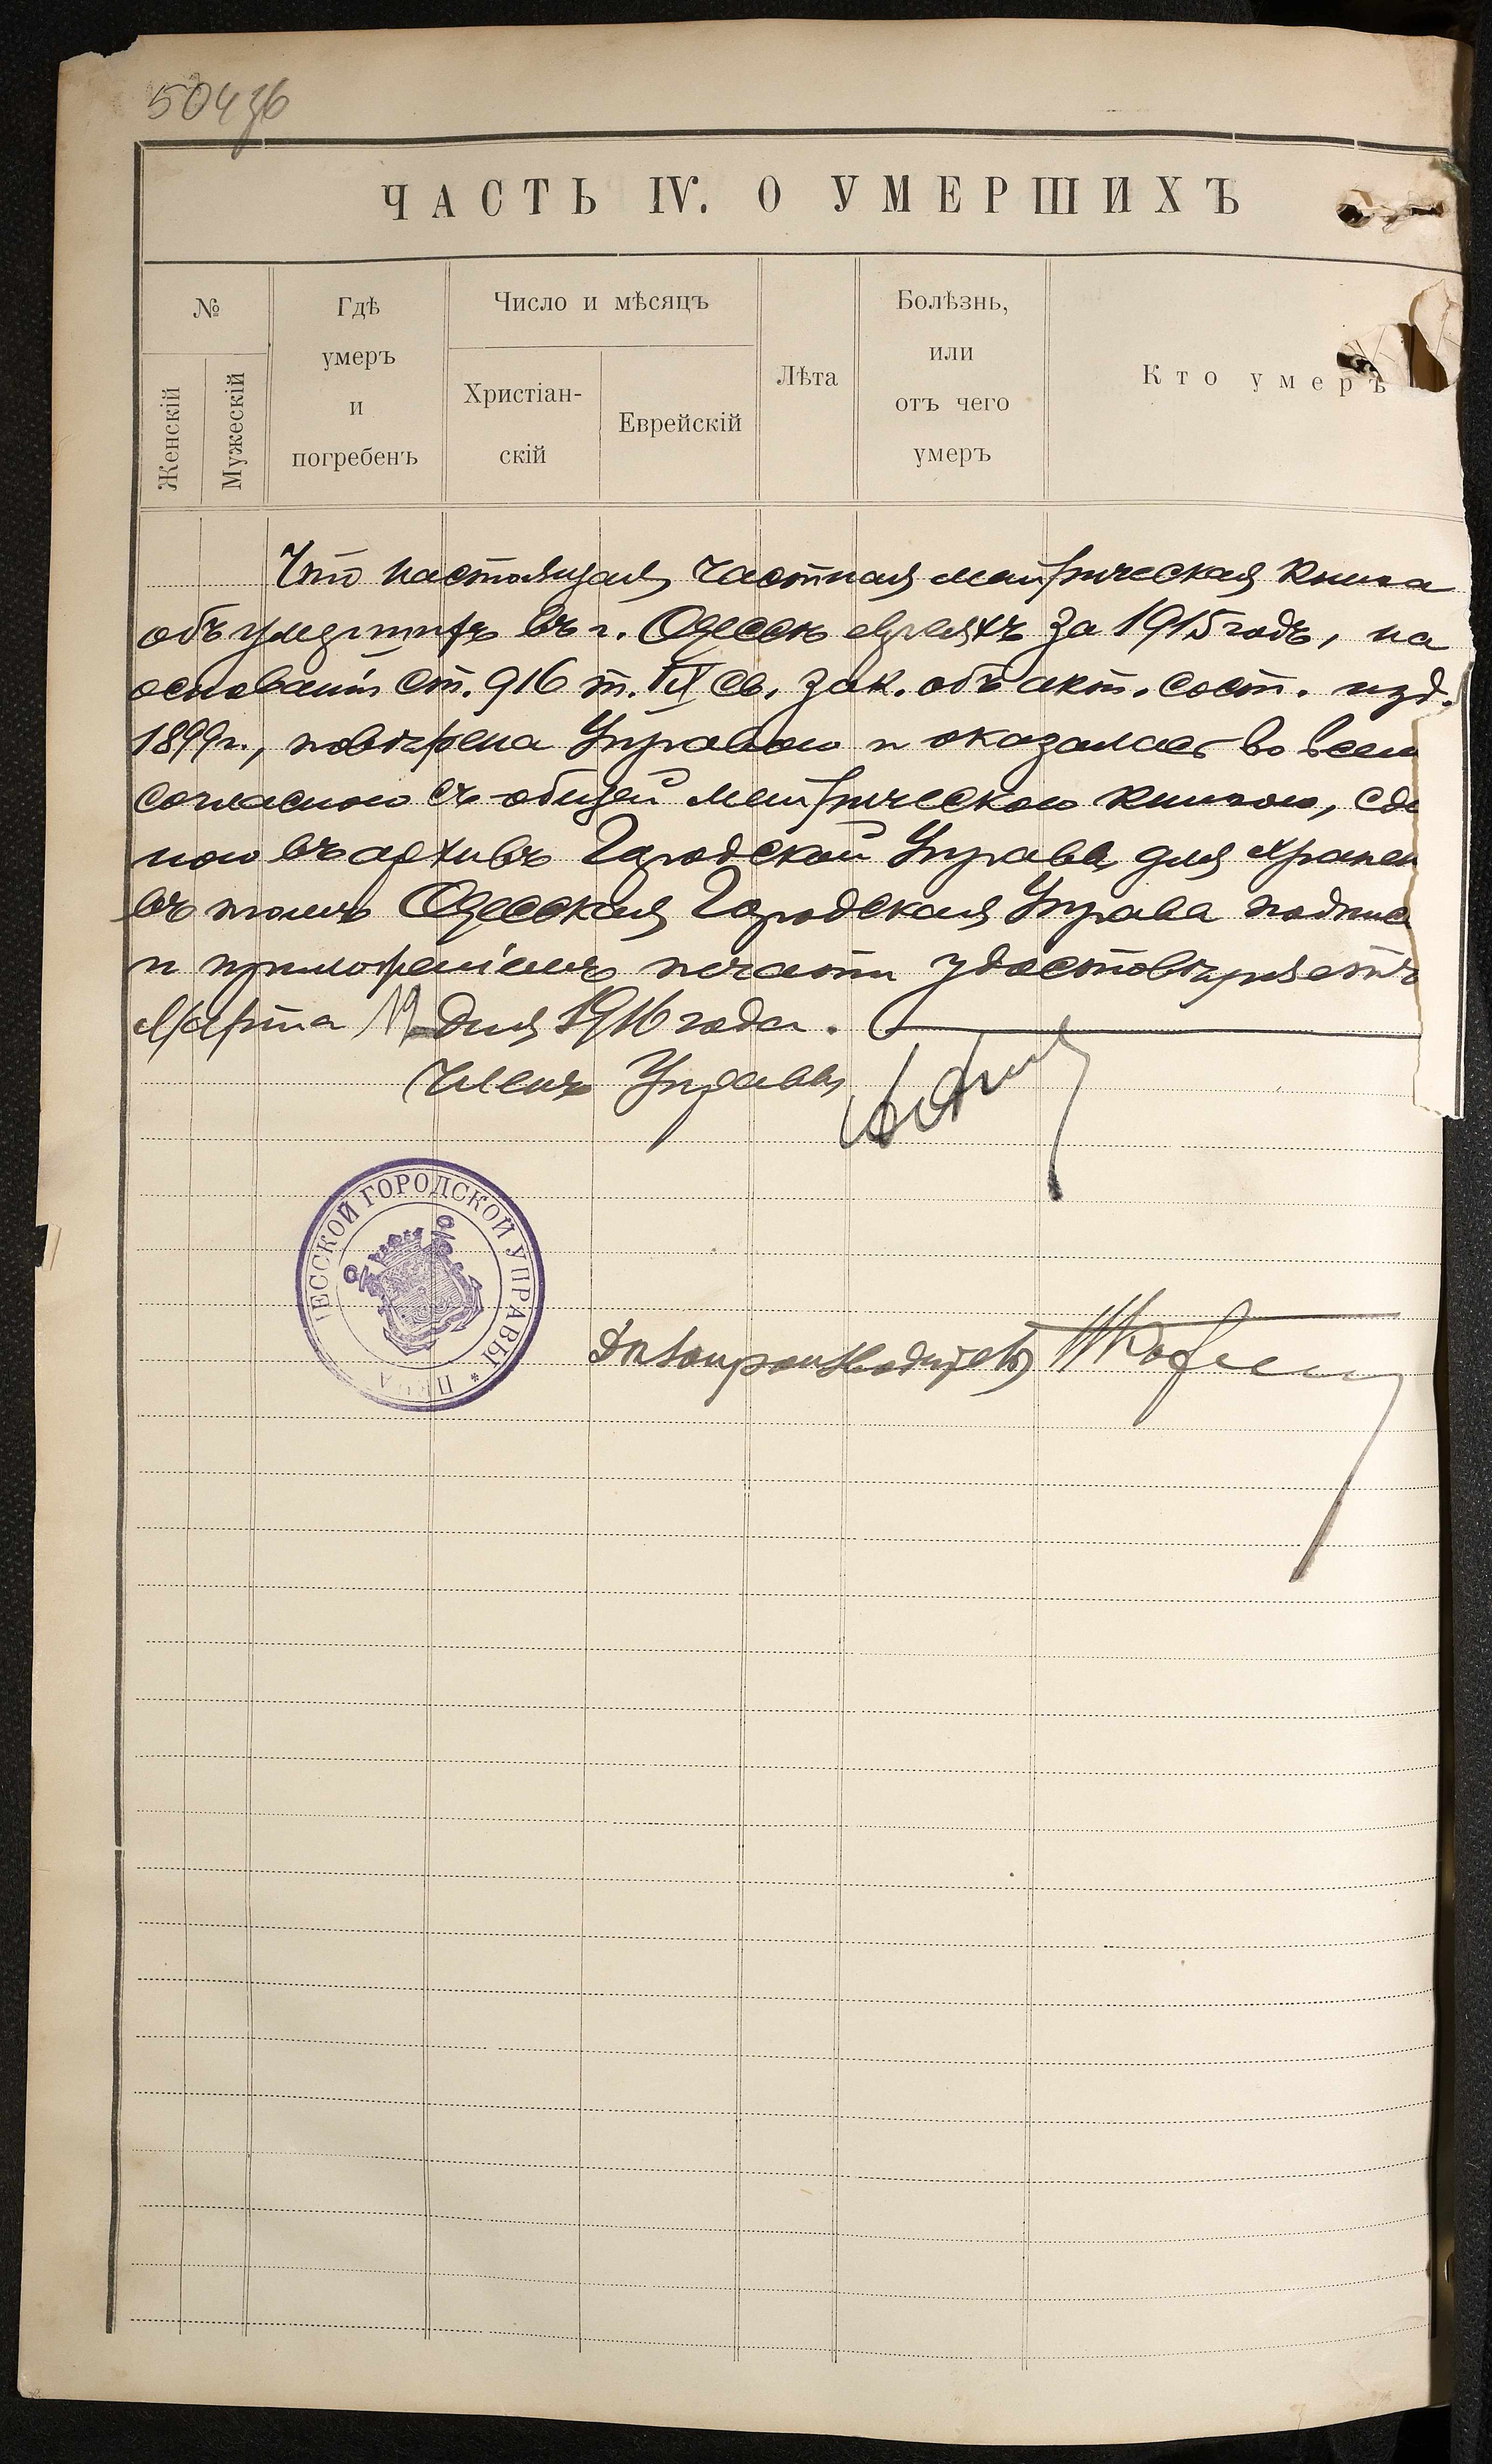 50436
ЧАСТЬ IV. О УМЕРШИХЪ
№
Женскій
Мужескій
Гдѣ
умеръ
и
погребенъ
Число и мѣсяцъ
Христіан-
скій
Еврейскій
Лѣта
Болѣзнь,
или
отъ чего
умеръ
Кто умеръ
Что настоящая частная метрическая книга
объ умершихъ въ г. Одессѣ евреяхъ за 1915 годъ, на
основаніи ст. 916 т. IX св. зак. объ акт. сост. изд.
1899 г., повѣрена Управою и оказалась во всем
согласною съ общей метрическою книгою, сда
ною въ архивъ Городской Управы для хранен
въ томъ Одесская Городская Управа подпис
и приложеніемъ печати удостовѣряетъ
Марта 19 дня 1916 года.
Членъ Управы
ЕССКОЙ ГОРОДСКОЙ УПРАВЫ *
Дѣлопроизводитель